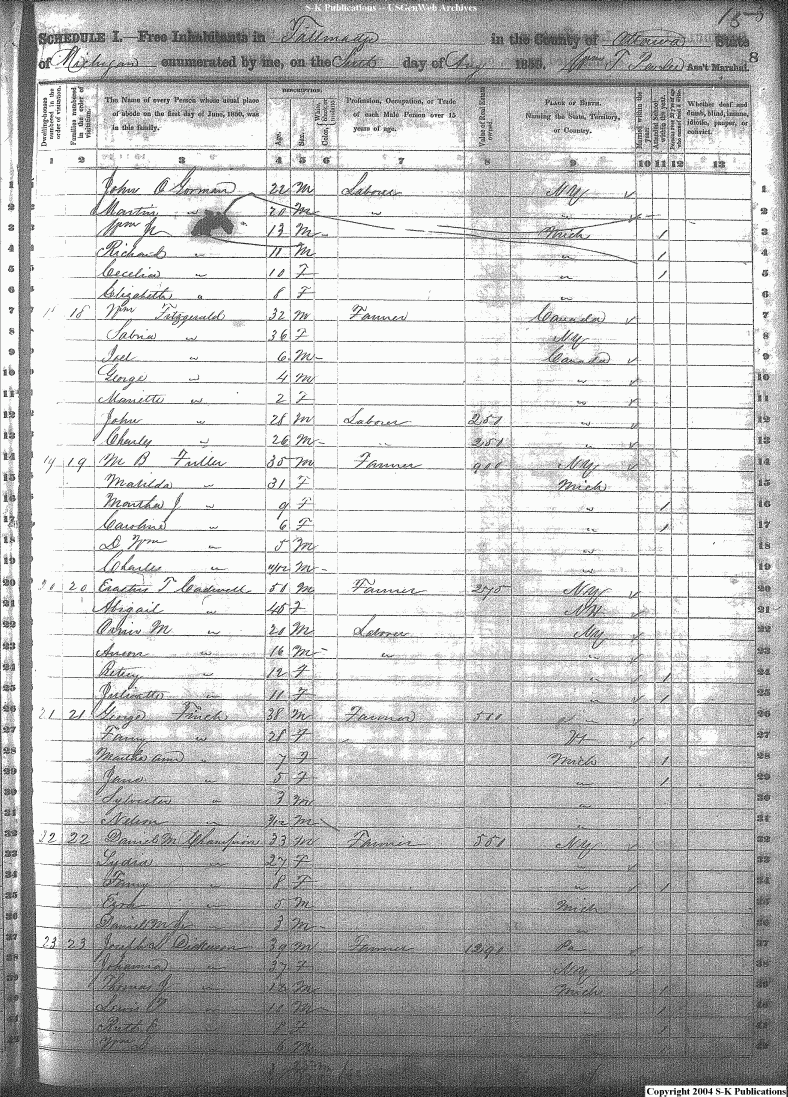 S-K Publications -- USGenWeb Archives
SCHEDULE I.—Free Inhabitants in Tallmadge in the County of Ottawa State
of Michigan enumerated by me, on the day of Aug 1850. Ass't Marshal. 8
DESCRIPTION.
Dwelling-houses numbered in the order of visitation.
Families numbered in the order of visitation.
The Name of every Person whose usual place of abode on the first day of June, 1850, was in this family.
Age.
Sex.
Profession, Occupation, or Trade of each Male Person over 15 years of age.
Value of Real Estate owned.
PLACE OF BIRTH. Naming the State, Territory, or Country.
Married within the year.
Attended School within the year.
Whether deaf and dumb, blind, insane, idiotic, pauper, or convict.
1 2 3 4 5 6 7 8 9 10 11 12 13
1 John O Gorman 22 M Laborer NY ✓ 1
2 Martin " 20 M " " 2
3 Wm Jr 13 M Mich 1 3
4 Richard " 11 M " 1 4
5 Cecelia " 10 F " 1 5
6 Elizabeth " 8 F " 6
7 18 Wm Fitzgerald 32 M Farmer Canada ✓ 7
8 Sabria " 36 F NY 8
9 Joel " 6 M Canada ✓ 9
10 George " 4 M " ✓ 10
11 Mariette " 2 F " ✓ 11
12 John " 28 M Laborer 250 " ✓ 12
13 Charley " 26 M " 250 " ✓ 13
14 19 19 M B Fuller 35 M Farmer 900 NY ✓ 14
15 Matilda " 31 F Mich 15
16 Martha J " 9 F " 1 16
17 Caroline " 6 F " 1 17
18 D Wm " 5 M " 18
19 Charles " M " 19
20 20 20 Erastus T Cadwell 50 M Farmer 275 NY ✓ 20
21 Abigail " 45 F NH ✓ 21
22 Orrin M " 20 M Laborer NY ✓ 22
23 Anson " 16 M " " ✓ 23
24 Betsey " 12 F " ✓ 1 24
25 Julieatte " 11 F " ✓ 1 25
26 21 21 George Finch 38 M Farmer 500 " ✓ 26
27 Fanny " 28 F Vt ✓ 27
28 Martha Ann " 7 F Mich 1 28
29 Jane " 5 F " 1 29
30 Sylvester " 3 M " 30
31 Nelson " M " 31
32 22 22 Daniel M Champion 33 M Farmer 550 NY ✓ 32
33 Lydia " 27 F " ✓ 33
34 Fanny " 8 F " ✓ 1 34
35 Ezra " 5 M Mich 35
36 Daniel M Jr " 3 M " 36
37 23 23 Joseph S Dickinson 39 M Farmer 1290 Pa ✓ 37
38 Johanna " 37 F NY ✓ 38
39 Thomas J " 12 M Mich 1 39
40 Lewis " 10 M " 1 40
41 Ruth E " 8 F " 1 41
42 Wm S " 6 M " 42
Copyright 2004 S-K Publications